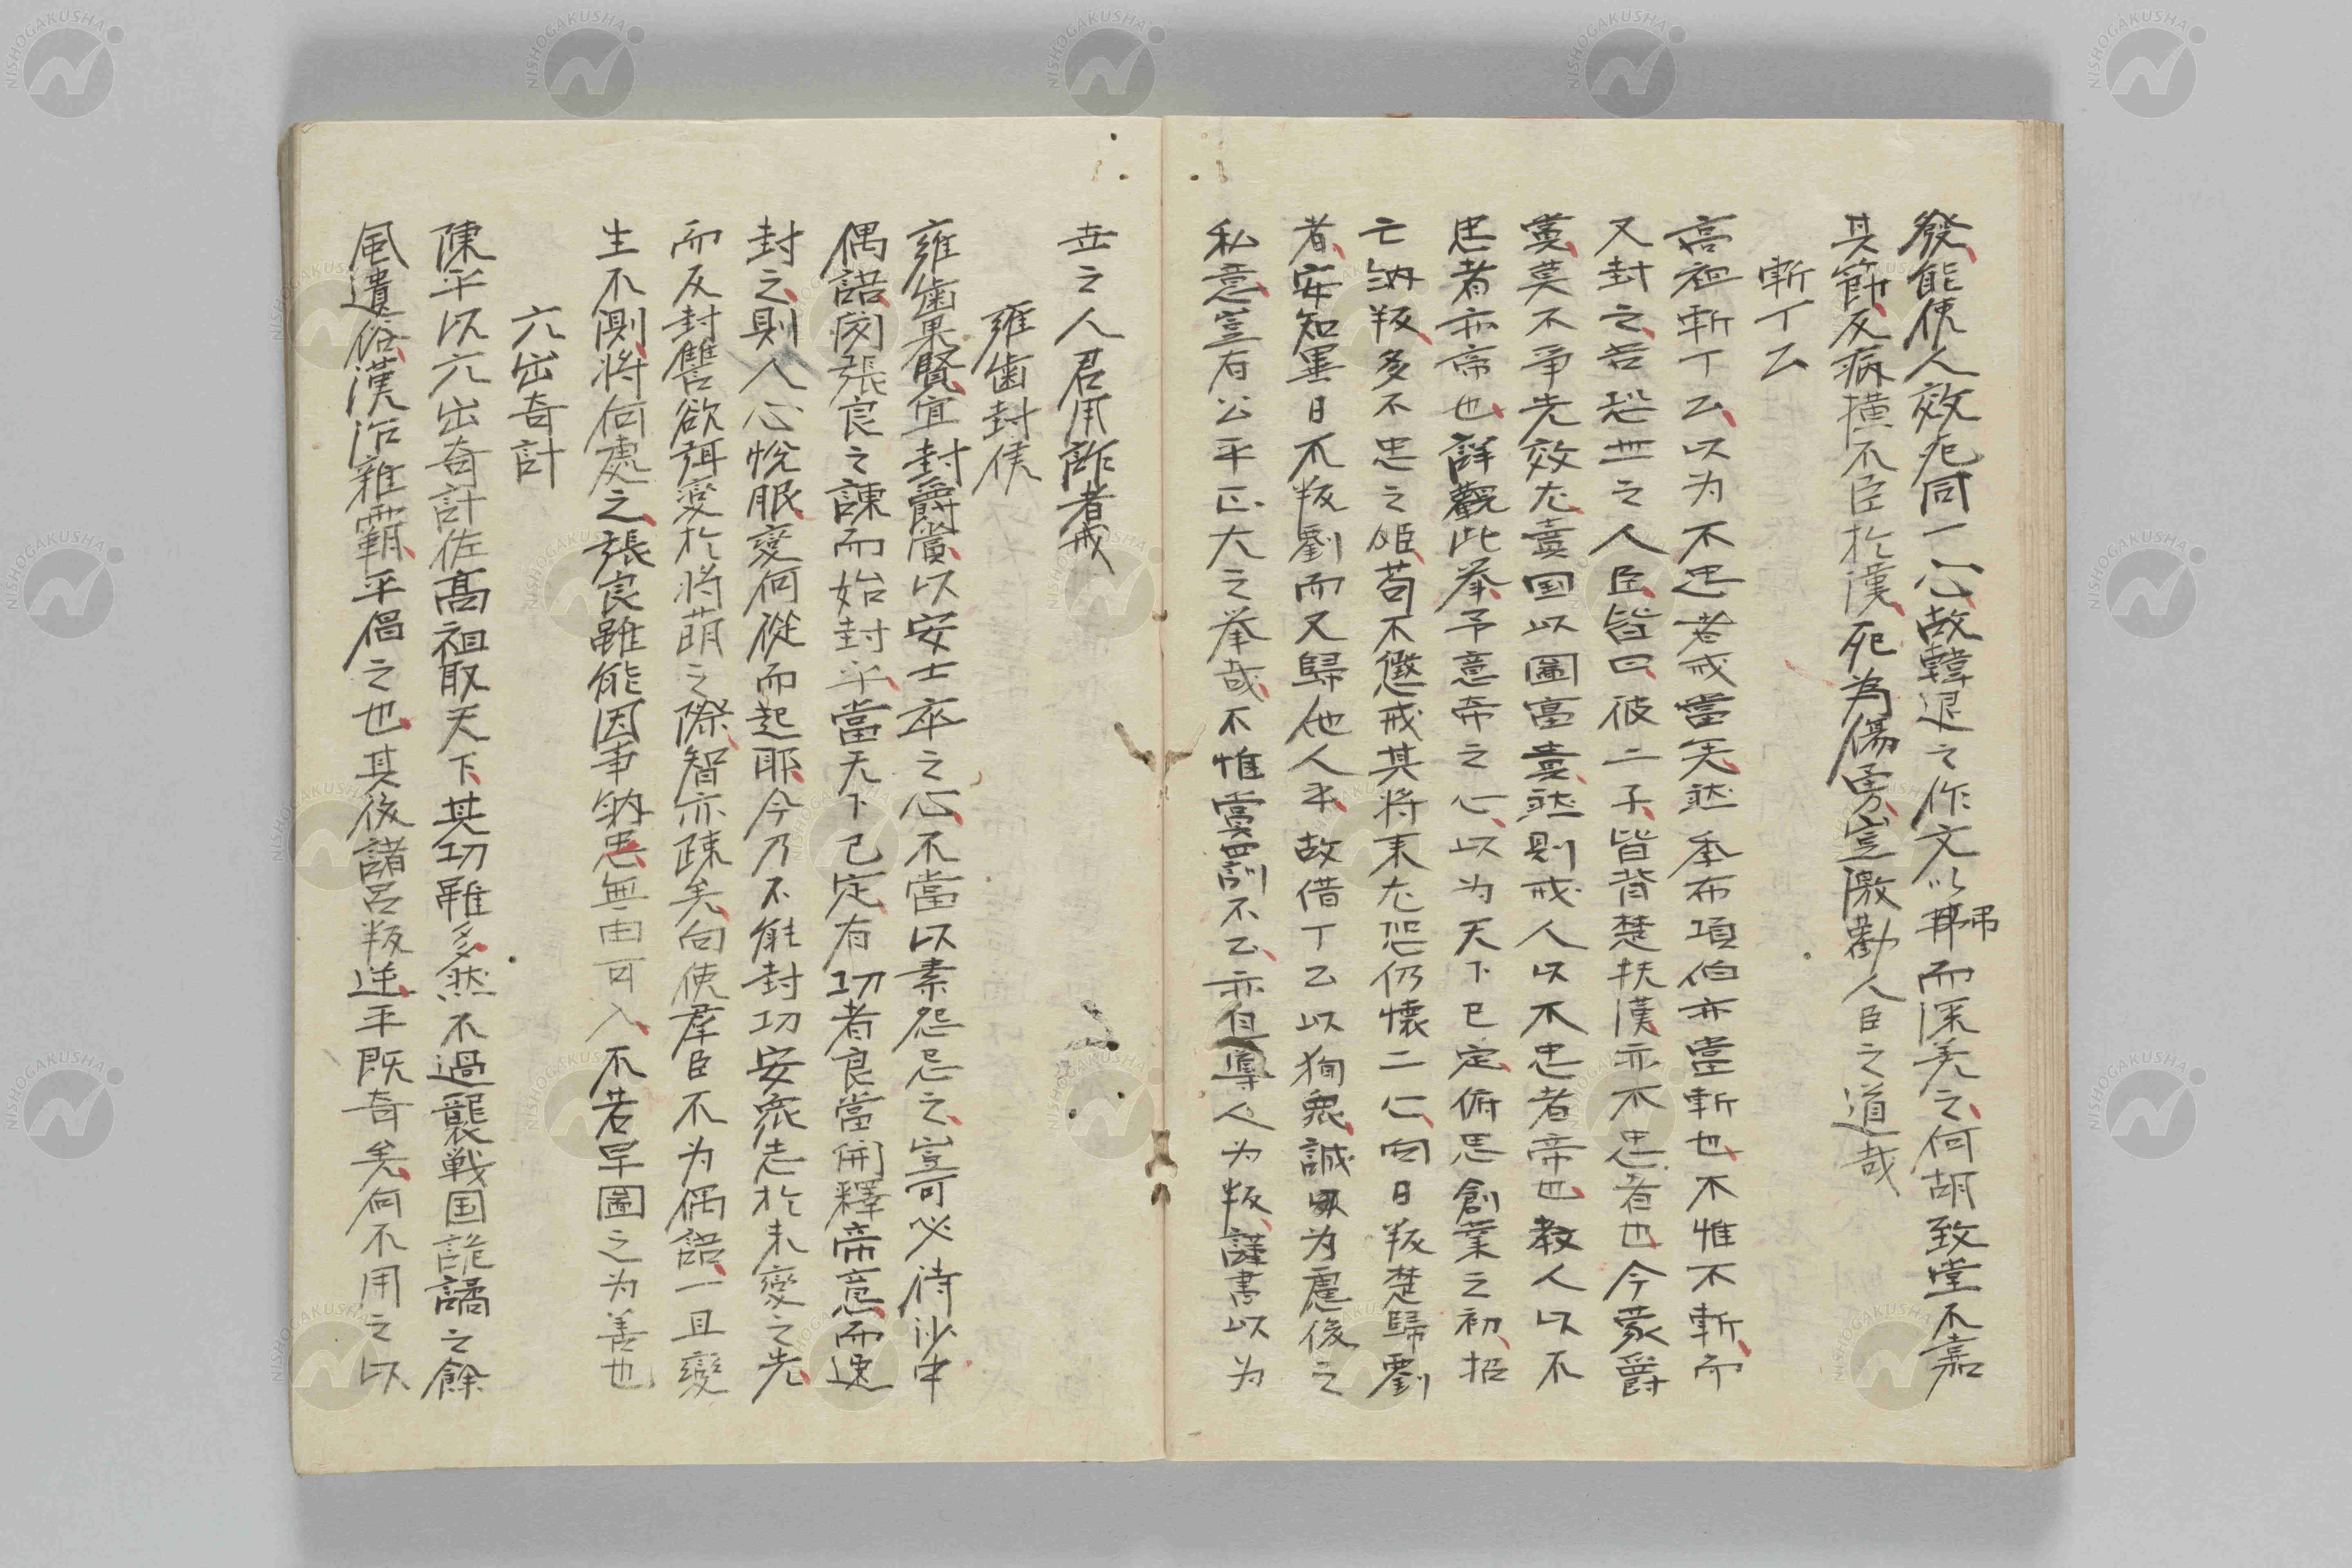 發能使人效死同一心故韓退之作文以弔而深羨之何胡致堂不嘉
其節反病横不臣於漢死為傷勇豈激勸人臣之道哉
斬丁公
高祖斬丁公以为不忠者戒當矣然季布項伯亦當斬也不惟不斬而
又封之若恐世之人臣皆曰彼二子皆背楚扶漢亦不忠者也今蒙爵
賞莫不爭先效尤賣国以圖富貴然則戒人以不忠者帝也教人以不
忠者亦帝也詳觀此举予意帝之心以为天下已定俯思創業之初招
亡納叛多不忠之姬苟不懲戒其將来尤恐仍懷二心向日叛楚歸劉
者安知異日不叛劉而又歸他人乎故借丁公以狥衆誠因为慮後之
私意豈有公平正大之举哉不惟賞罰不公亦但導人为叛謹書以为
世之人君用詐者戒
雍歯封侯
雍歯果賢宜封爵賞以安士卒之心不當以素怨忌之豈可必待沙中
偶語因張良之諫而始封乎當天下已定有功者良當開釋帝意而速
封之則人心悦服變何從而起耶今乃不能封功安衆志於未變之先
而反封讐欲弭變於将萠之際智亦疎矣向使羣臣不为偶語一旦變
生不測将何處之張良雖能因事納忠無由可入不若早圖之为善也
六出奇計
陳平以六出奇計佐高祖取天下其功雖多然不過襲戦国詭譎之餘
風遺俗漢治雜覇平倡之也其後諸呂叛逆平既奇矣何不用之以
NISHOGAKUSHA